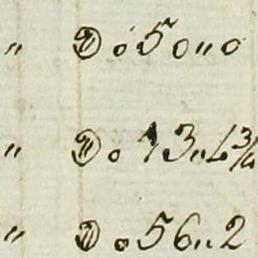 " Do 50 " 0
" Do 13 " 4 3/4
" Do 56 " 2